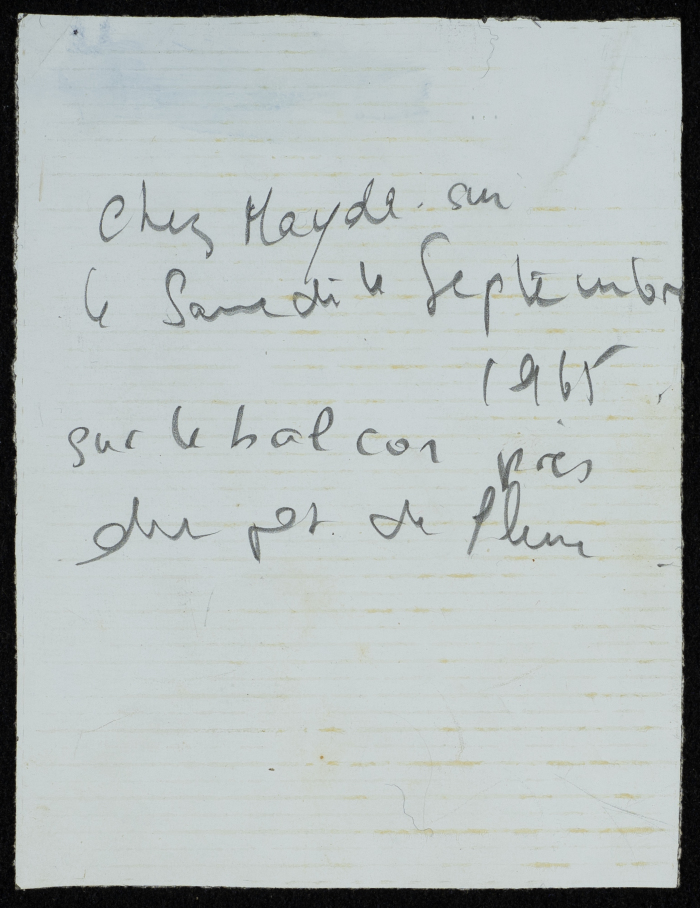 Chez Mayde. sur
le Samedi le Septembre
1965
sur le balcon près
du pot de fleur